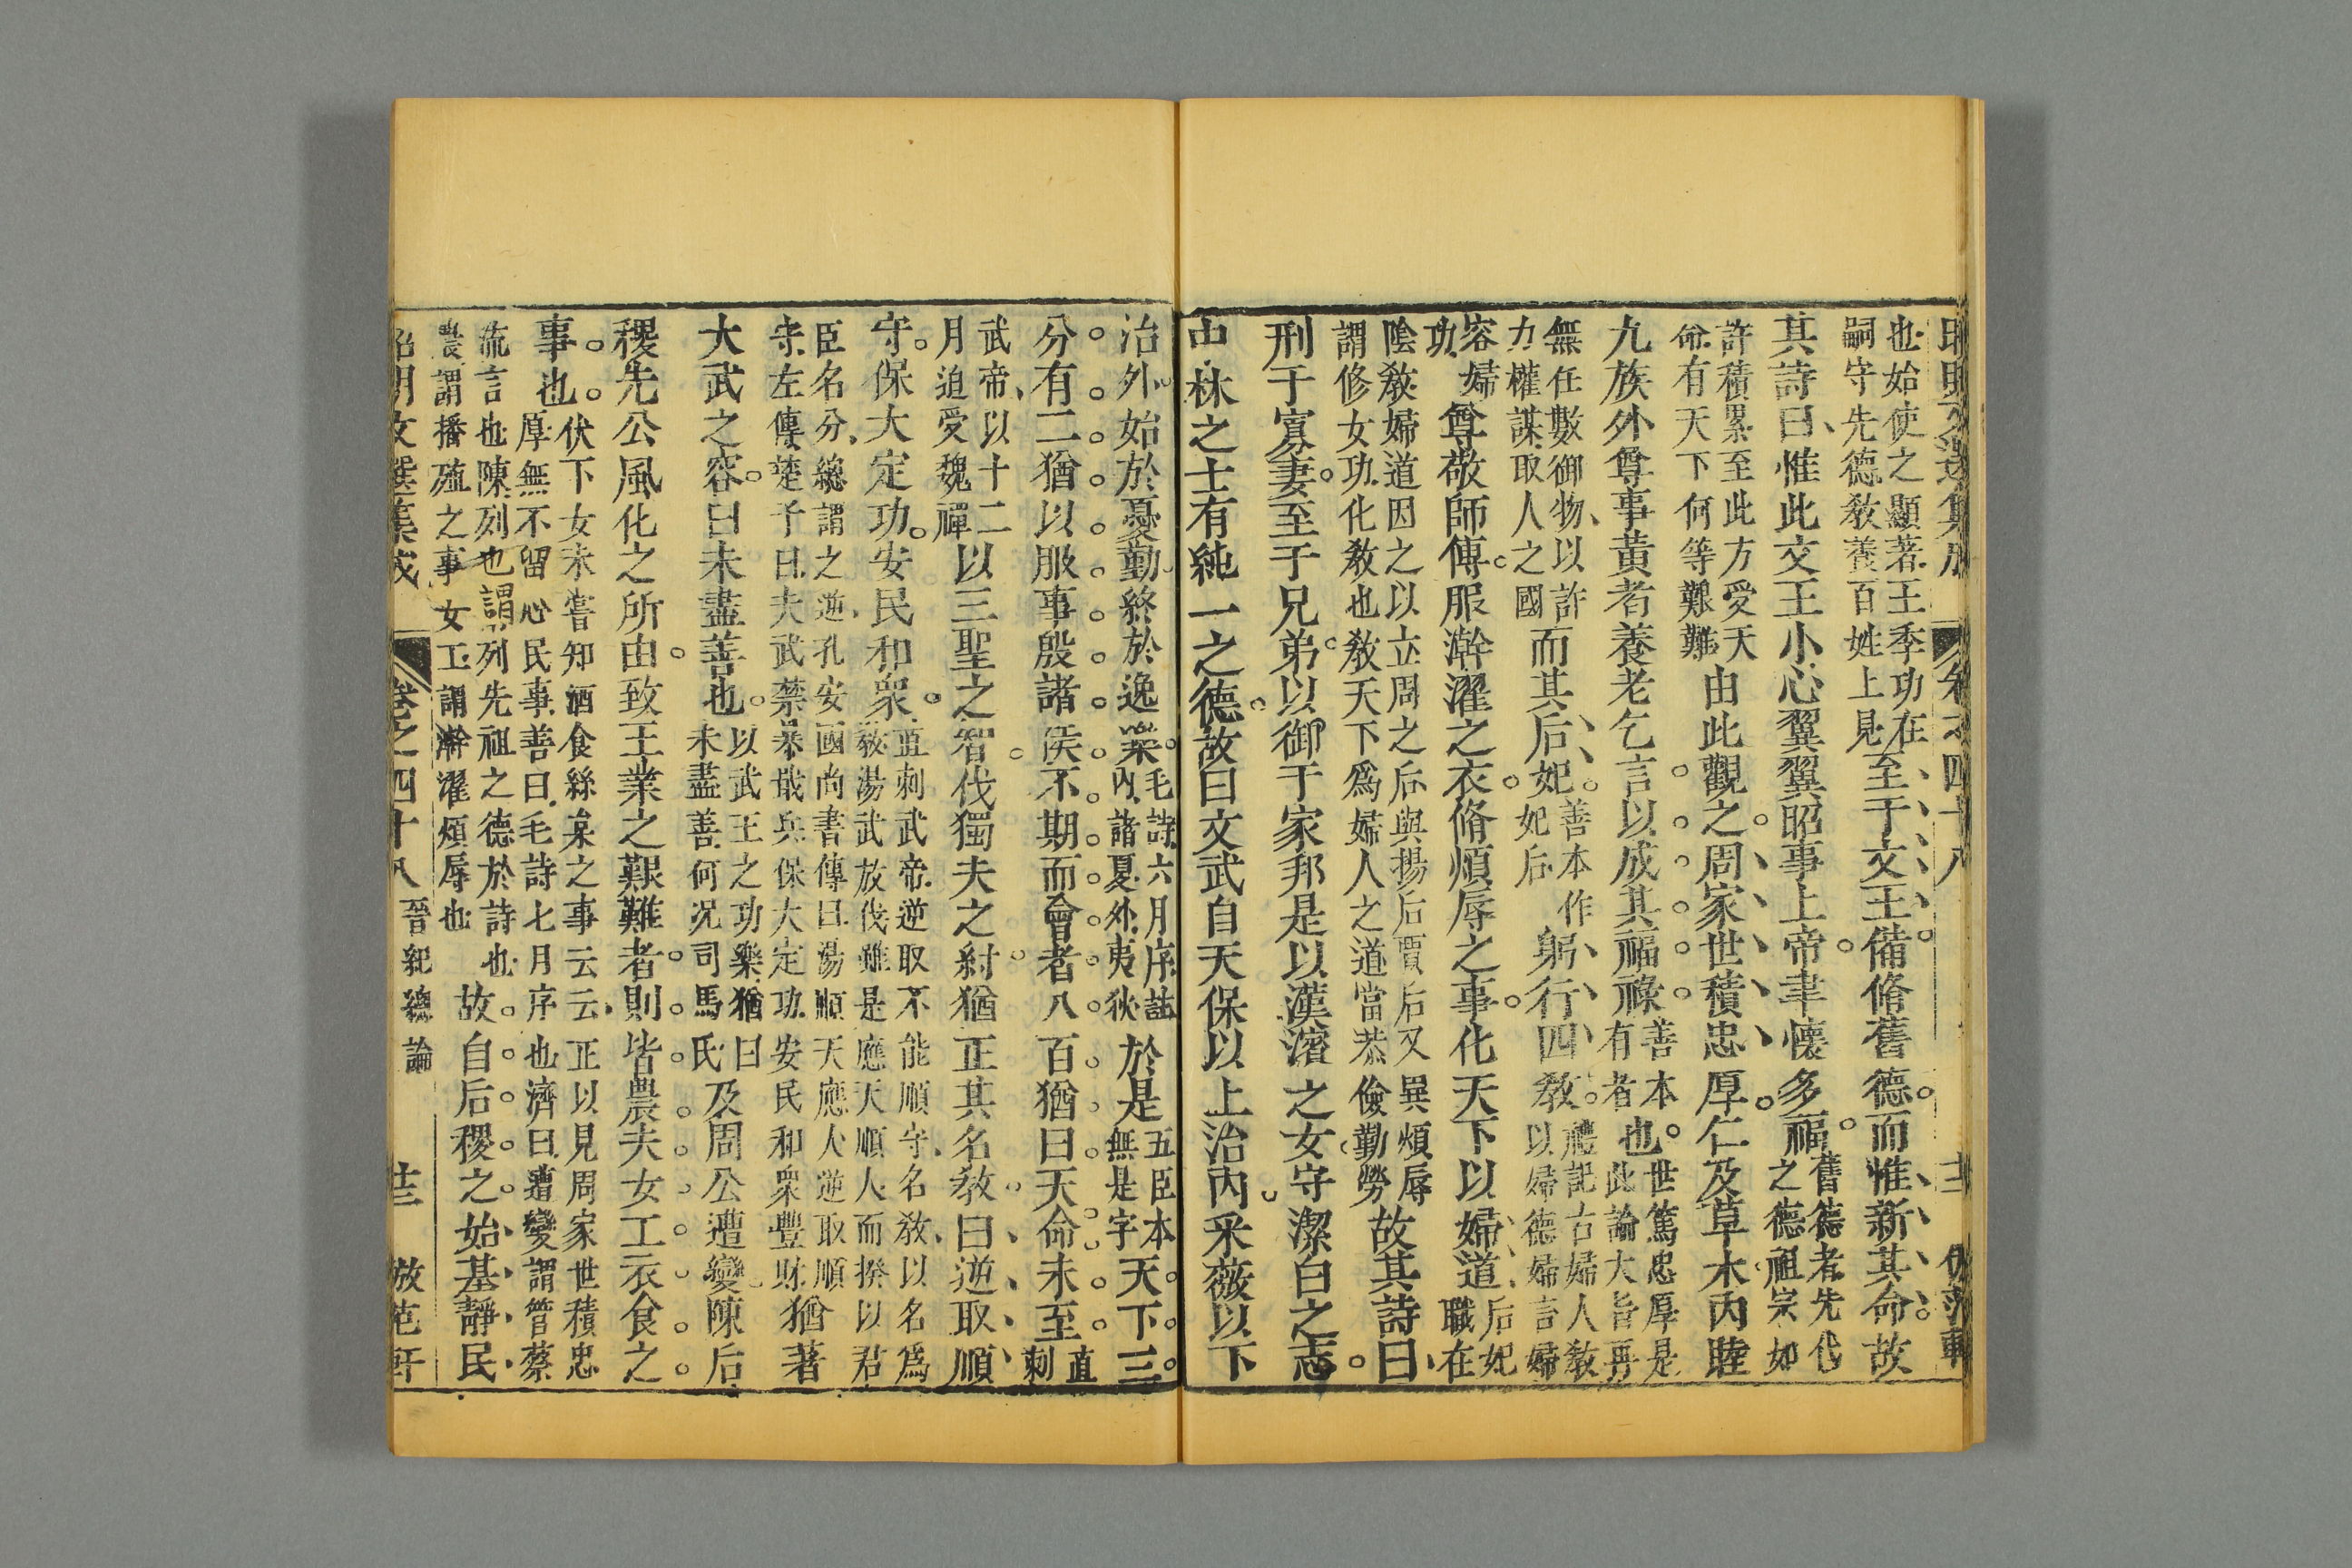 昭明文選集成 卷之四十八 十二 倣范軒
也始使之顯著王季功在
嗣守先德敎養百姓上見
至于文王備脩舊德而惟新其命故
其詩曰惟此文王小心翼翼昭事上帝聿懷多福
舊德者先代
之德祖宗如
許積累至此方受天
命有天下何等艱難
由此觀之周家世積忠厚仁及草木內睦
九族外尊事黃耉養老乞言以成其福祿
善本
有者
也
世篤忠厚是
此論大旨再
無任數御物以許
力權謀取人之國
而其后妃
善本作
妃后
躬行四敎
禮記古婦人敎
以婦德婦言婦
容婦
功
尊敬師傅服澣濯之衣脩煩辱之事化天下以婦道
后妃
職在
陰敎婦道因之以立周之后與揚后賈后又異煩辱
謂修女功化敎也敎天下爲婦人之道當恭儉勤勞
故其詩曰
刑于寡妻至于兄弟以御于家邦是以漢濱之女守潔白之志
中林之士有純一之德故曰文武自天保以上治內采薇以下
治外始於憂勤終於逸樂
毛詩六月序註
內諸夏外夷狄
於是
五臣本
無是字
天下三
分有二猶以服事殷諸侯不期而會者八百猶曰天命未至
直
刺
武帝以十二
月迫受魏禪
以三聖之智伐獨夫之紂猶正其名敎曰逆取順
守保大定功安民和衆
並刺武帝逆取不能順守名敎以名爲
敎湯武放伐雖是應天順人而揆以君
臣名分總謂之逆孔安國尚書傳曰湯順天應人逆取順
守左傳楚子曰夫武禁暴戢兵保大定功安民和衆豐財
猶著
大武之容曰未盡善也
以武王之功樂猶曰
未盡善何况司馬氏
及周公遭變陳后
稷先公風化之所由致王業之艱難者則皆農夫女工衣食之
事也
伏下女未嘗知酒食絲枲之事云云正以見周家世積忠
厚無不留心民事善曰毛詩七月序也濟曰遭變謂管蔡
流言也陳列也謂列先祖之德於詩也
農謂播殖之事女工謂澣濯煩辱也
故自后稷之始基靜民
昭明文選集成 卷之四十八 晉紀總論 十三 倣范軒